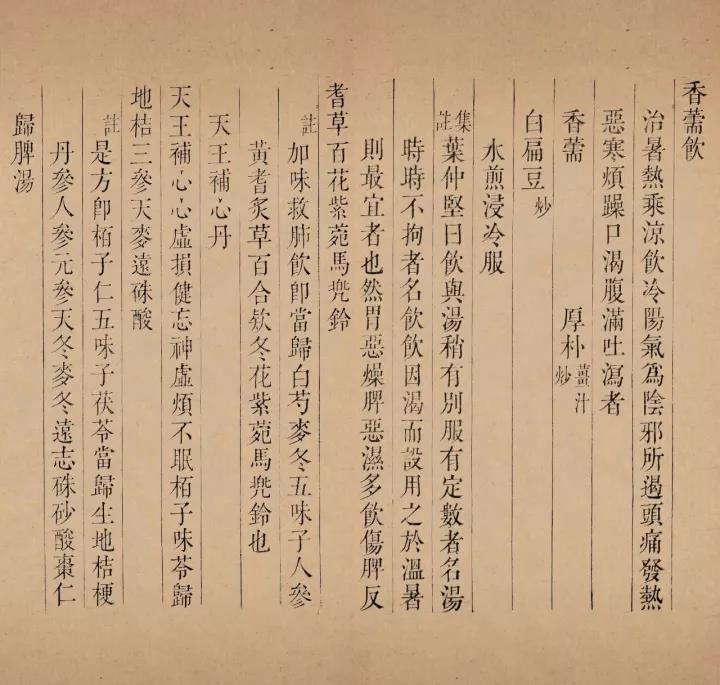 香薷飲
治暑熱乘涼飲冷陽氣為陰邪所遏頭痛發熱
惡寒煩躁口渴腹滿吐瀉者
香薷 厚朴薑汁炒
白扁豆炒
水煎浸冷服
集註葉仲堅曰飲與湯稍有別服有定數者名湯
時時不拘者名飲飲因渴而設用之於溫暑
則最宜者也然胃惡燥脾惡濕多飲傷脾反
耆草百花紫菀馬兠鈴
註加味救肺飲卽當歸白芍麥冬五味子人參
黃耆炙草百合欵冬花紫菀馬兠鈴也
天王補心丹
天王補心心虛損健忘神虛煩不眠栢子味苓歸
地桔三參天麥遠硃酸
註是方卽栢子仁五味子茯苓當歸生地桔梗
丹參人參元參天冬麥冬遠志硃砂酸棗仁
歸脾湯